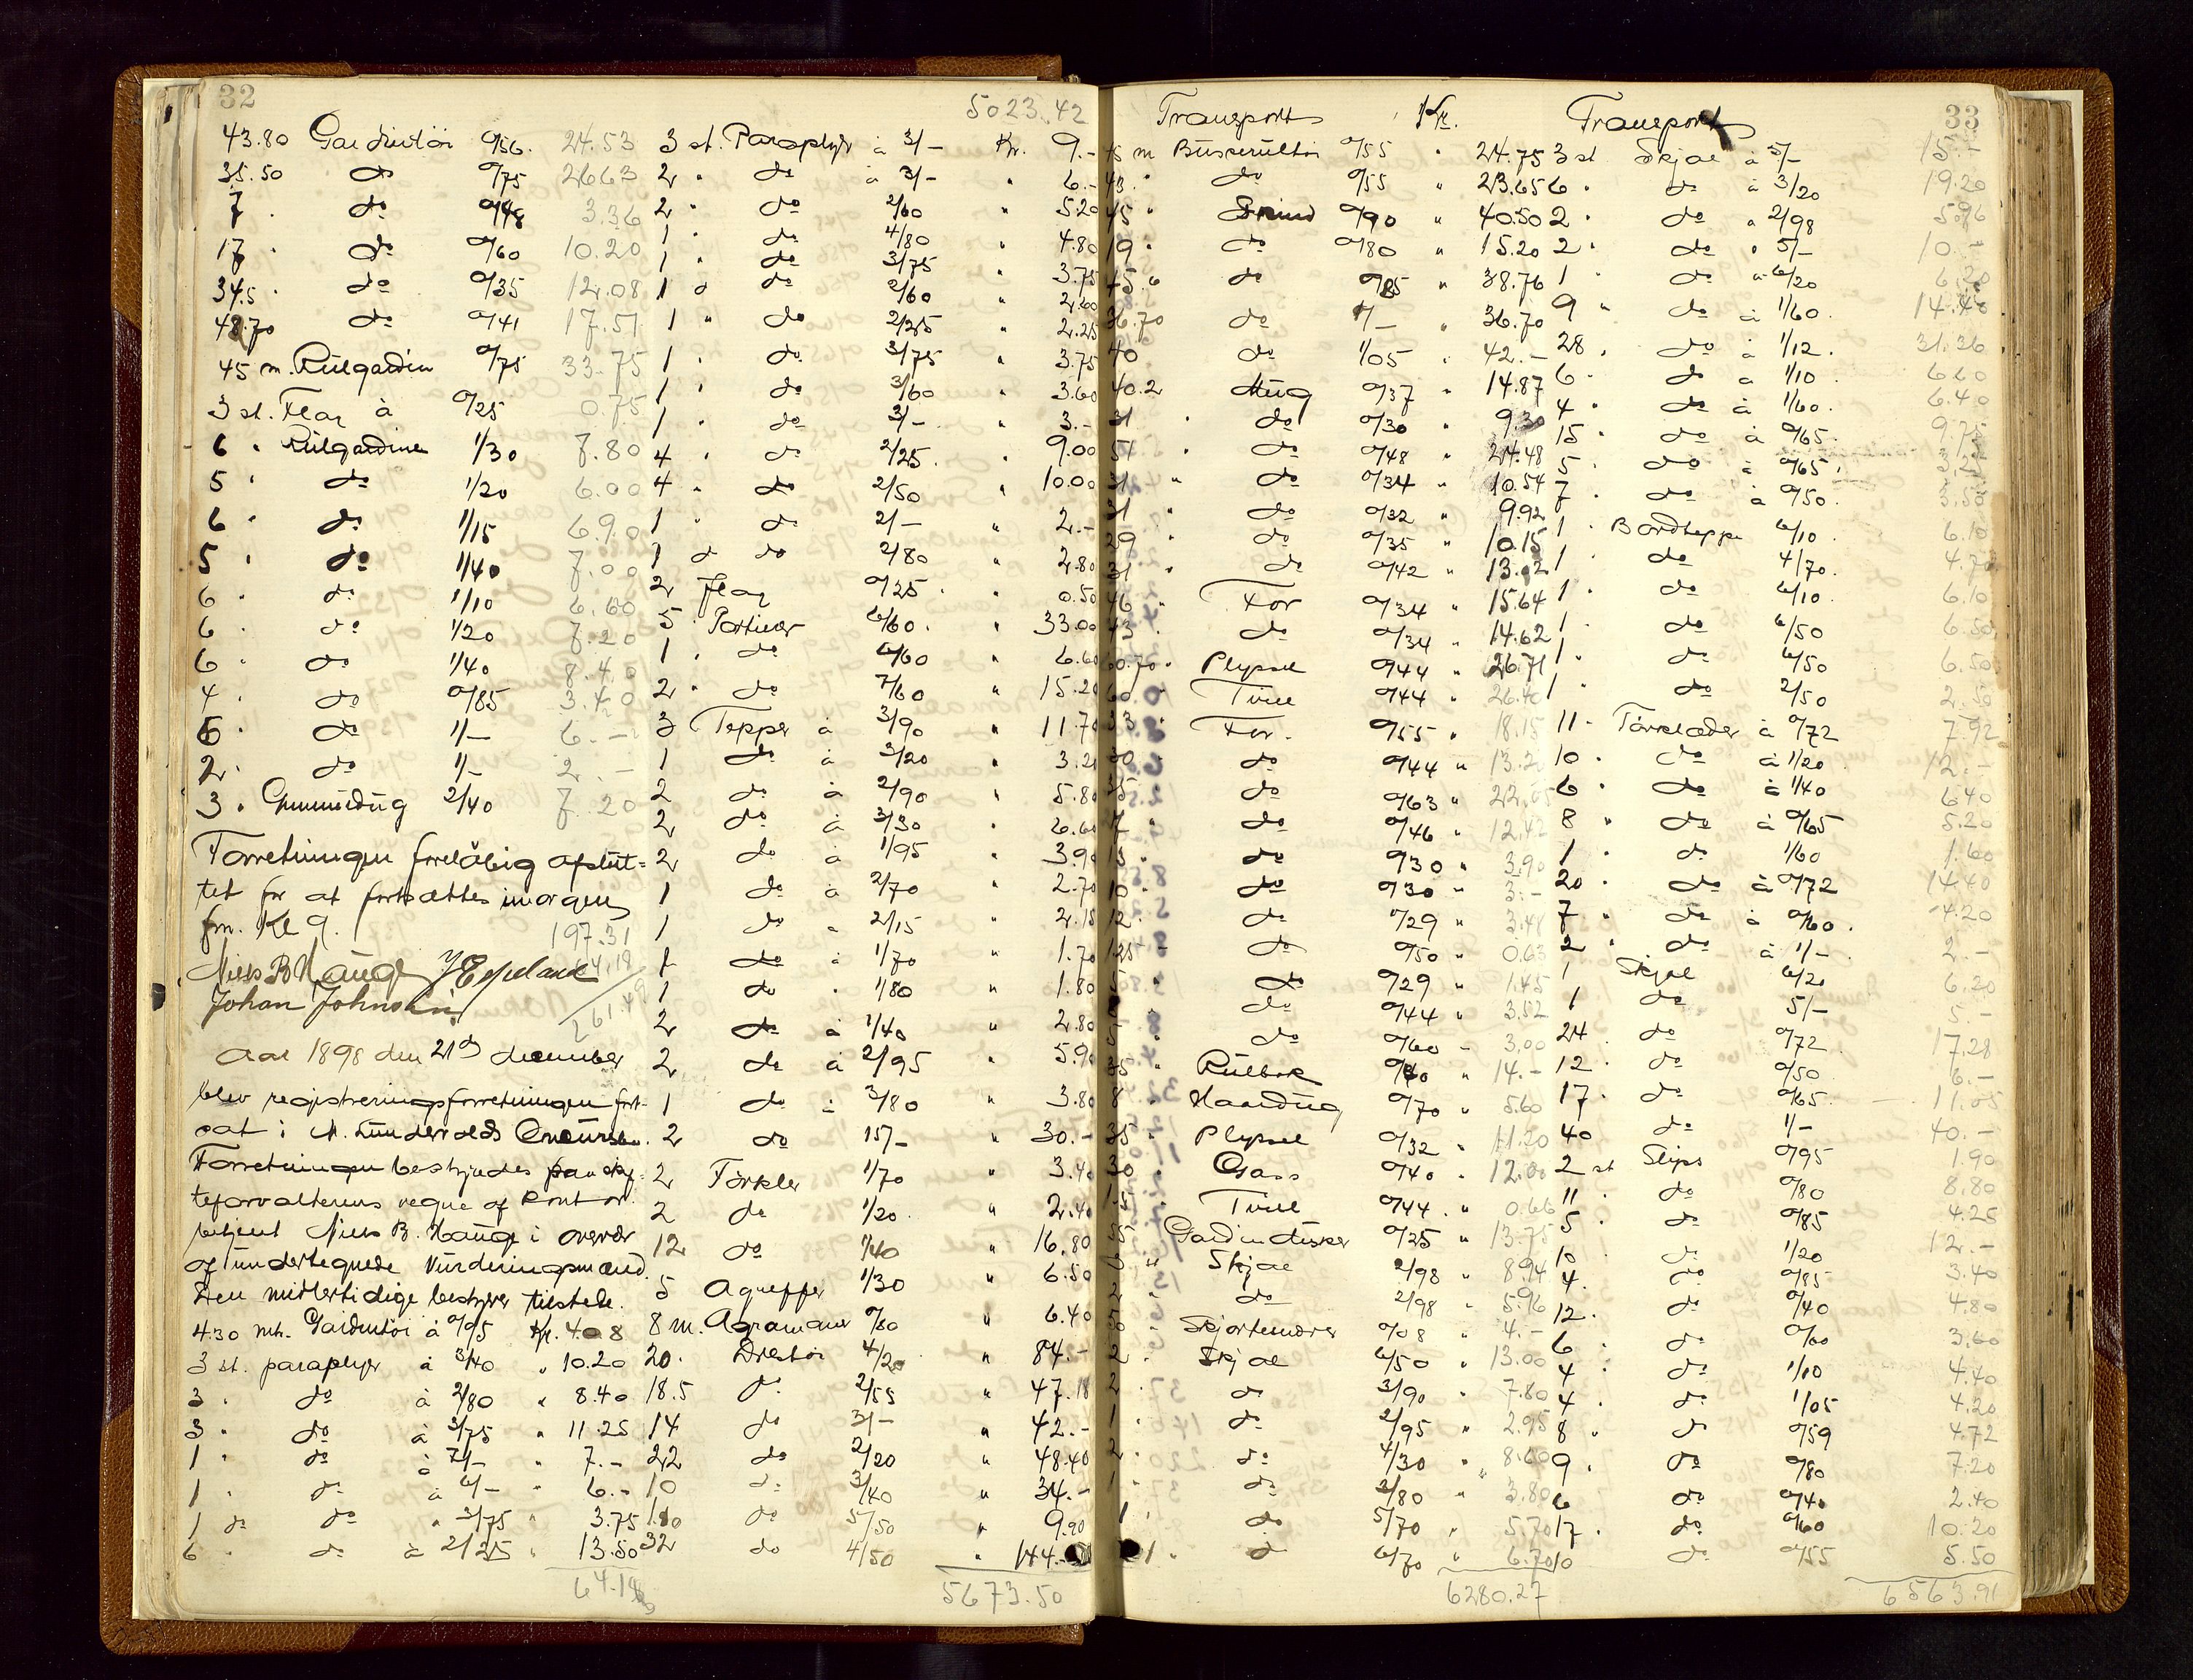 32
43.80 Gardintöi 0/56. 24.53
35.50 do 0/75 26.63
7 . do 0/48 3.36
17 . do 0/60 10.20
34.5 . do 0/35 12.08
42.70 do 0/41 17.51
45 m. Rülgardin 0/75 33.75
3 st. Flag à 0/25 0.75
6 . Rülgardiner 1/30 7.80
5 . do 1/20 6.00
6 . do 1/15 6.90
5 . do 1/40 7.00
6 . do 1/10 6.60
6 . do 1/20 7.20
6 . do 1/40 8.40
4 . do 0/85 3.40
6 . do 1/- 6.-
2 . do 1/- 2.-
3 . Gummidüg 2/40 7.20
Forretningen foreløbig afslüt=
tet for at fortsættes imorgen
fm. Kl 9.
197.31
64.18
261.49
Niels B Hauge J Espeland
Johan Johnsen
Aar 1898 den 21de december
blev registreringsforretningen fort-
sat i M. Lündevolds Concürsbo.
Forretningen bestyrtes paa skif-
teforvalterens vegne af kontor-
betjent Niels B. Haüge i overvær
af ündertegnede Vürderingsmænd.
Den midlertidige bestyrer tilstede.
4.30 mtr. Gardintöi à 0/95 Kr. 4.08
3 st. paraplyer à 3/40 " 10.20
3 . do à 2/80 " 8.40
3 . do à 3/75 " 11.25
1 . do à 7/- " 7.-
1 . do à 6/- " 6.-
1 do do " 3/75 " 3.75
6 . do à 2/25 " 13.50
64.18
5023.42
3 st. Paraplyr à 3/- Kr. 9.-
2 . do à 3/- " 6.-
2 . do 2/60 " 5.20
1 . do 4/80 " 4.80
1 . do 3/75 " 3.75
1 d do 2/60 " 2.60
1 " do 2/25 " 2.25
1 . do 3/75 " 3.75
1 . do 3/60 " 3.60
1 . do 3/- . 3.-
4 . do 2/25 . 9.00
4 . do 2/50 " 10.00
1 . do 2/- " 2.-
1 d do 2/80 " 2.80
2 Flag 0/25 . 0.50
5 . Portierer 6/60 . " 33.00
1 . do 6/60 " 6.60
2 . do 7/60 " 15.20
3 Tepper à 3/90 " 11.70
1 do à 3/20 " 3.20
2 do à 2/90 " 5.80
2 do à 3/30 " 6.60
2 do à 1/95 " 3.90
1 do à 2/70 " 2.70
1 do " 2/15 " 2.15
1 do à 1/70 " 1.70
1 do . 1/80 " 1.80
2 do à 1/40 " 2.80
2 do à 2/95 " 5.90
1 do à 3/80 " 3.80
2 do 15/- " 30.-
2 Törkler 1/70 " 3.40
2 do 1/20 " 2.40
12 do 1/40 " 16.80
5 Agreffer 1/30 " 6.50
8 m. Agramaner 0/80 " 6.40
20 . Dresstöi 4/20 " 84.-
18.5 do 2/55 " 47.18
14 do 3/- " 42.-
22 do 2/20 " 48.40
10 do 3/40 " 34.-
1.80 do 5/50 " 9.90
32 do 4/50 " 144.-
5673.50
Transport Kr.
45 m Büskerültöi 0/55 " 24.75
43 . do 0/55 " 23.65
45 " Strind 0/90 " 40.50
19 . do 0/80 " 15.20
45.6 do 0/85 " 38.76
36.70 do 1/- " 36.70
40 do 1/05 " 42.-
40.2 Hüg 0/37 " 14.87
31 . do 0/30 " 9.30
51 . do 0/48 " 24.48
31 " do 0/34 " 10.54
31 . do 0/32 " 9.92
29 . do 0/35 " 10.15
31 . do 0/42 " 13.02
46 " For 0/34 " 15.64
43 . do 0/34 " 14.62
60.70 . Plysch 0/44 " 26.71
60 . Tvill 0/44 " 26.40
33 . For. 0/55 " 18.15
30 do 0/44 " 13.20
35 do 0/63 " 22.05
27 do 0/46 " 12.42
13 do 0/30 " 3.90
10 . do 0/30 " 3.-
12 . do 0/29 " 3.48
1.25 do 0/50 " 0.63
5 . do 0/29 " 1.45
8 do 0/44 " 3.52
5 . do 0/60 - 3.00
35 . Rülbok 0/40 " 14.-
8 . Haandüg 0/70 " 5.60
35 . Plysch 0/32 . 11.20
30 . Gass 0/40 . 12.00
1.5 . Tvill 0/44 . 0.66
55 . Gardindusker 0/25 " 13.75
3 . Skjal 2/98 " 8.94
2 . do 2/98 " 5.96
50 . Skjorteindrer 0/08 " 4.-
2 . Skjal 6/50 . 13.00
2 . do 3/90 . 7.80
1 . do 2/95 " 2.95
2 . do 4/30 " 8.60
1 . do 3/80 " 3.80
1 . do 5/70 " 5.70
1 . do 6/70 " 6.70
6280.27
33
Transport
3 st. Skjal à 5/- 15.-
6 . do à 3/20 19.20
2 . do " 2/98 5.96
2 . do " 5/- 10.-
1 . do " 6/20 6.20
9 " do à 1/60 . 14.40
28 . do à 1/12 . 31.36
6 . do à 1/10 6.60
4 . do à 1/60 . 6.40
15 . do à 0/65 . 9.75
5 . do à 0/65 . 3.25
7 . do à 0/50 . 3.50
1 . Bordteppe 6/10 . 6.10
1 . do 4/70 . 4.70
1 . do 6/10 . 6.10
1 . do 6/50 6.50
1 . do 6/50 6.50
1 . do 2/50 2.50
11 . Törklæder à 0/72 7.92
10 . do à 1/20 12.-
6 . do à 1/40 6.40
8 " do à 0/65 5.20
1 . do 1/60 1.60
20 . do à 0/72 14.40
7 " do à 0/60 . 4.20
2 . do à 1/- . 2.-
1 Skjal 6/20 6.20
1 do 5/- 5.-
24 do 0/72 17.28
12 . do 0/50 6.-
17 . do 0/65 . 11.05
40 do 1/- 40.-
2 st Slips 0/95 1.90
11 . do 0/80 8.80
5 . do 0/85 4.25
10 . do 1/20 12.-
4 . do 0/85 3.40
12 . do 0/40 4.80
6 . do 0/60 3.60
4 . do 1/10 4.40
4 . do 1/05 4.20
8 " do 0/59 4.72
9 . do 0/80 7.20
6 do 0/40 2.40
17 . do 0/60 10.20
10 do 0/55 5.50
6563.91